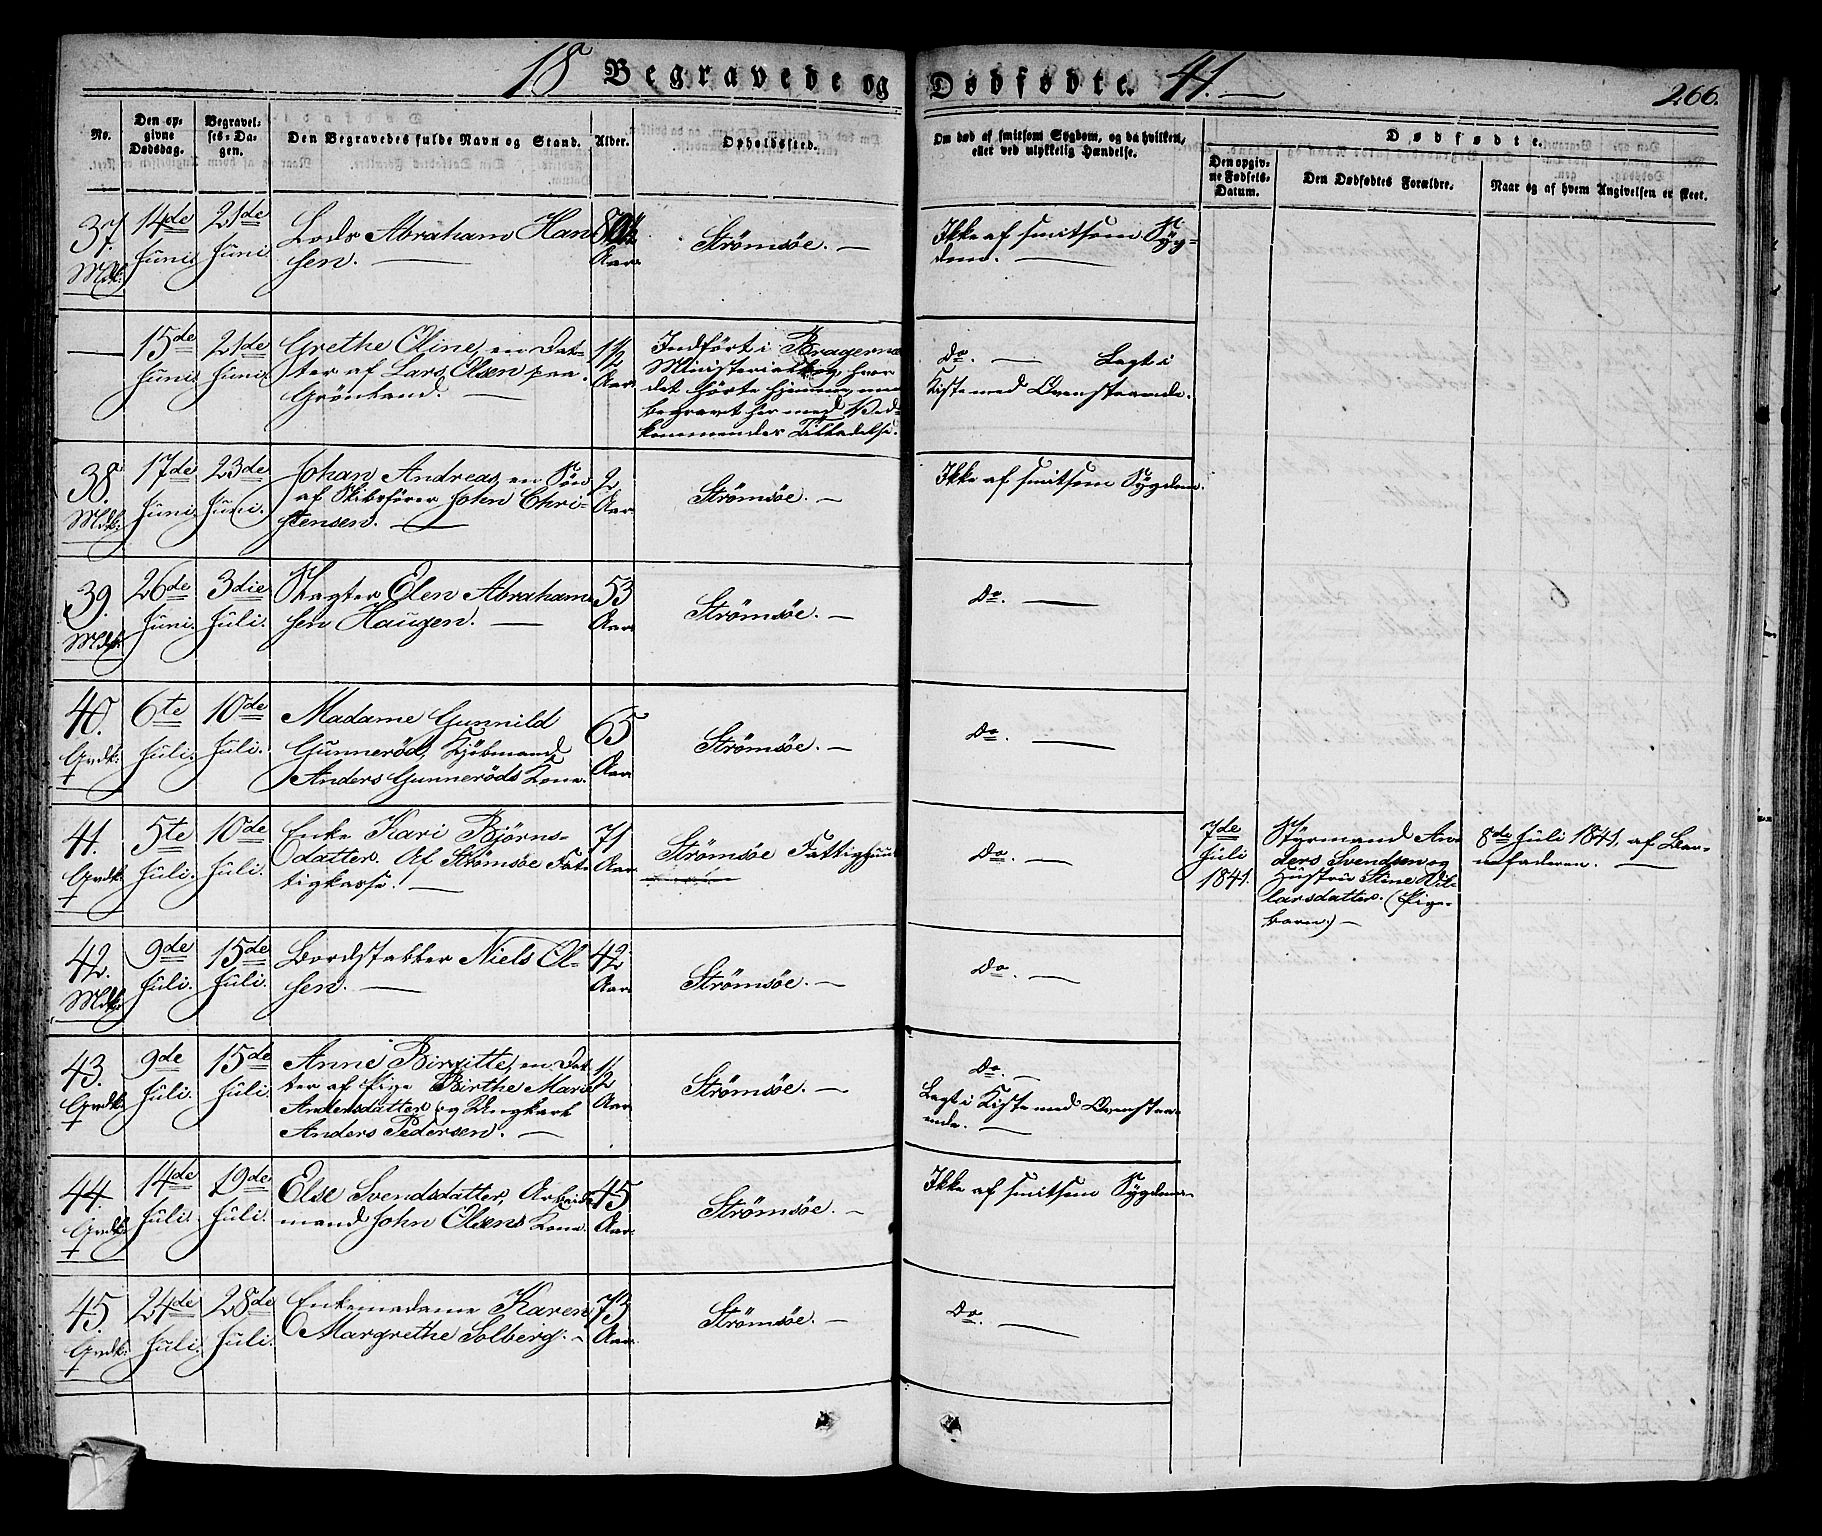 18 Begravede og Dødfødte. 41.
266.
No.
Den opgivne Dødsdag.
Begravelses-Dagen.
Den Begravedes fulde Navn og Stand.
Alder.
Opholdssted.
Om død af smitsom Sygdom, og da hvilken,
eller ved ulykkelig Hændelse.
Dødfødte.
Den opgivne Fødsels-Datum.
Den Dødfødtes Forældre.
Naar og af hvem Angivelsen er skeet.
37. 14de Juni. 21de Juni
Lods Abraham Han
sen. —
Aar
Strömsöe. —
Ikke af smitsom Syg-
dom. —
— 15de Juni. 21de Juni
Grethe Oline, en Dat-
ter af Lars Olsen paa
Grönland. —
1/2 Aar
Indfört i Bragernes
Ministerialbog, hvor
det hörte hjemme, men
begravt her med Ved-
kommendes Tilladelse.
Do. — Lagt i
Kiste med Ovenstaaende.
38. 17de Juni. 23de Juni.
Johan Andreas, en Sön
af Skibsförer John Chri-
stensen. —
2 Aar
Strömsöe. —
Ikke af smitsom Sygdom.
39. 26de Juni. 3die Juli.
Elen Abraham
sen Haugen. —
53 Aar
Strömsöe. —
Do. —
40. 6te Juli. 10de Juli.
Madame Gunnild
Gunneröd, Kjöbmand
Anders Gunneröds Kone.
65 Aar
Strömsöe. —
Do. —
41. 5te Juli. 10de Juli.
Enke Kari Björns-
datter. Af Strömsöe Fat-
tigkasse. —
71 Aar
Strömsöe Fattighuus
Do. —
7de
Juli
1841.
Styrmand An-
ders Svendsen og
Hustru Stine
larsdatter. (Pige-
barn.) —
8de Juli 1841, af Bar-
nefaderen. —
42. 9de Juli. 15de Juli.
Bordstabler Niels Ol-
sen. —
42 Aar
Strömsöe. —
Do. —
43. 9de Juli. 15de Juli.
Anne Birgitte, en Dat-
ter af Pige Birthe Marie
Andersdatter og Ungkarl
Anders Pedersen. —
1/2 Aar
Strömsöe. —
Do. —
Lagt i Kiste med Ovenstaa-
ende. —
44. 14de Juli. 19de Juli.
Else Svendsdatter, Arbeids-
mand John Olsens Kone.
45 Aar
Strömsöe. —
Ikke af smitsom Sygdom.
45. 24de Juli. 28de Juli.
Enkemadame Karen
Margrethe Solberg. —
73 Aar
Strömsöe. —
Do. —